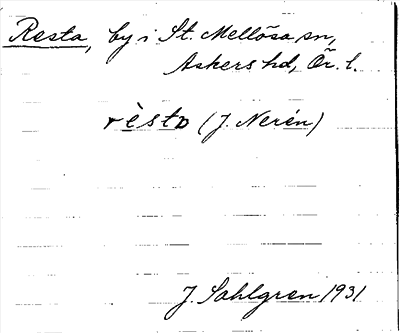 Resta, by i St. Mellösa sn,
Askers hd, Ör. l.
rèsta (J. Nerén)
J. Sahlgren 1931